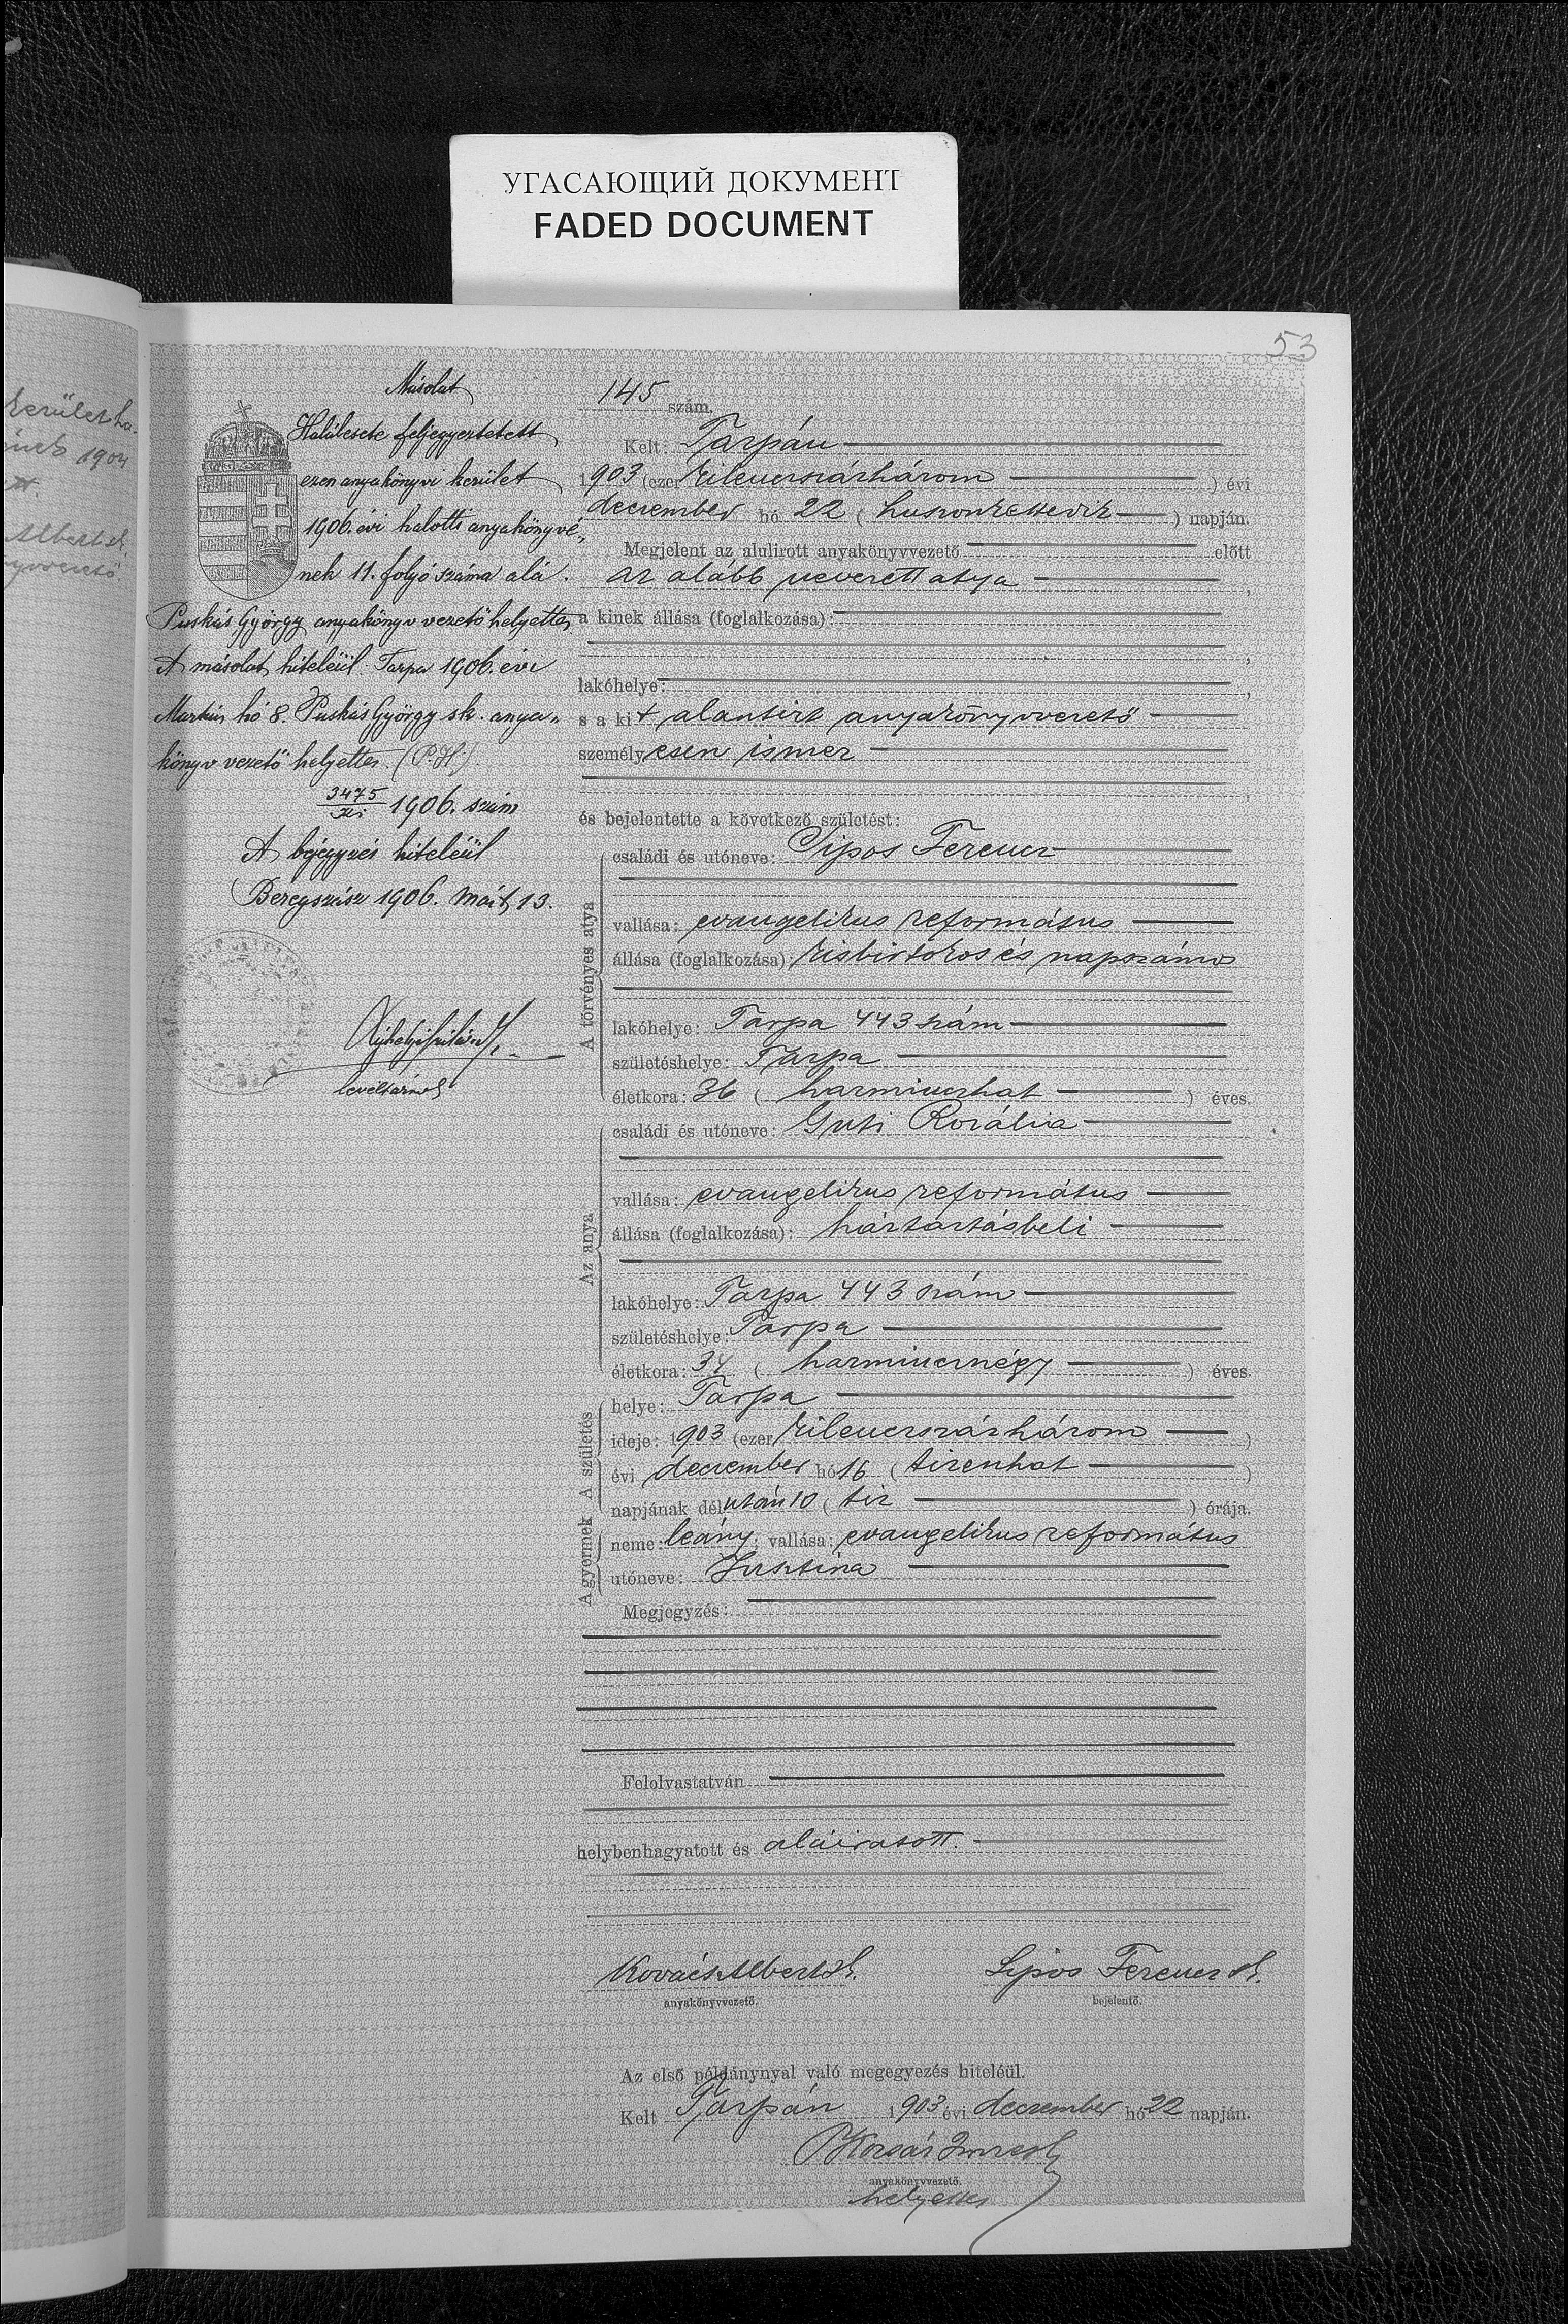 УГАСАЮЩИЙ ДОКУМЕНТ
FADED DOCUMENT
53
kerület ha-
1904
Albert sk.
Másolat
Halálesete feljegyeztetett
ezen anyakönyvi kerület
1906. évi halotti anyakönyvé-
nek 11. folyó száma alá.
Puskás György anyakönyv vezető helyettes
A másolat hiteléül Tarpa 1906. évi
Martius hó 8. Puskás György sk. anya-
könyv vezető helyettes. (P.H.)
3475/xi 1906. szám
A bejegyzés hiteléül
Beregszász 1906. Mart. 13.
levéltárnok
145 szám.
Kelt: Tarpán
1903 (ezer kilenczszázhárom) évi
deczember hó 22 (huszonkettedik) napján.
Megjelent az alulirott anyakönyvvezető előtt
az alább nevezett atya,
a kinek állása (foglalkozása):
lakóhelye:
s a kit alantirt anyakönyvvezető
személyesen ismer
és bejelentette a következő születést:
A törvényes atya
családi és utóneve: Sipos Ferencz
vallása: evangelikus református
állása (foglalkozása): kisbirtokos és napszámos
lakóhelye: Tarpa 443 szám
születéshelye: Tarpa
életkora: 36 (harminczhat) éves.
Az anya
családi és utóneve: Guti Rozália
vallása: evangelikus református
állása (foglalkozása): háztartásbeli
lakóhelye: Tarpa 443 szám
születéshelye: Tarpa
életkora: 34 (harmincznégy) éves
A születés
helye: Tarpa
ideje: 1903 (ezer kilenczszázhárom)
évi deczember hó 16 (tizenhat)
napjának délután 10 (tiz) órája.
A gyermek
neme: leány; vallása: evangelikus református
utóneve: Jusztina
Megjegyzés:
Felolvastatván
helybenhagyatott és aláiratott.
Kovács Albert sk. Sipos Ferencz sk.
anyakönyvvezető. bejelentő.
Az első példánynyal való megegyezés hiteléül.
Kelt Tarpán 1903 évi deczember hó 22 napján.
anyakönyvvezető.
helyettes